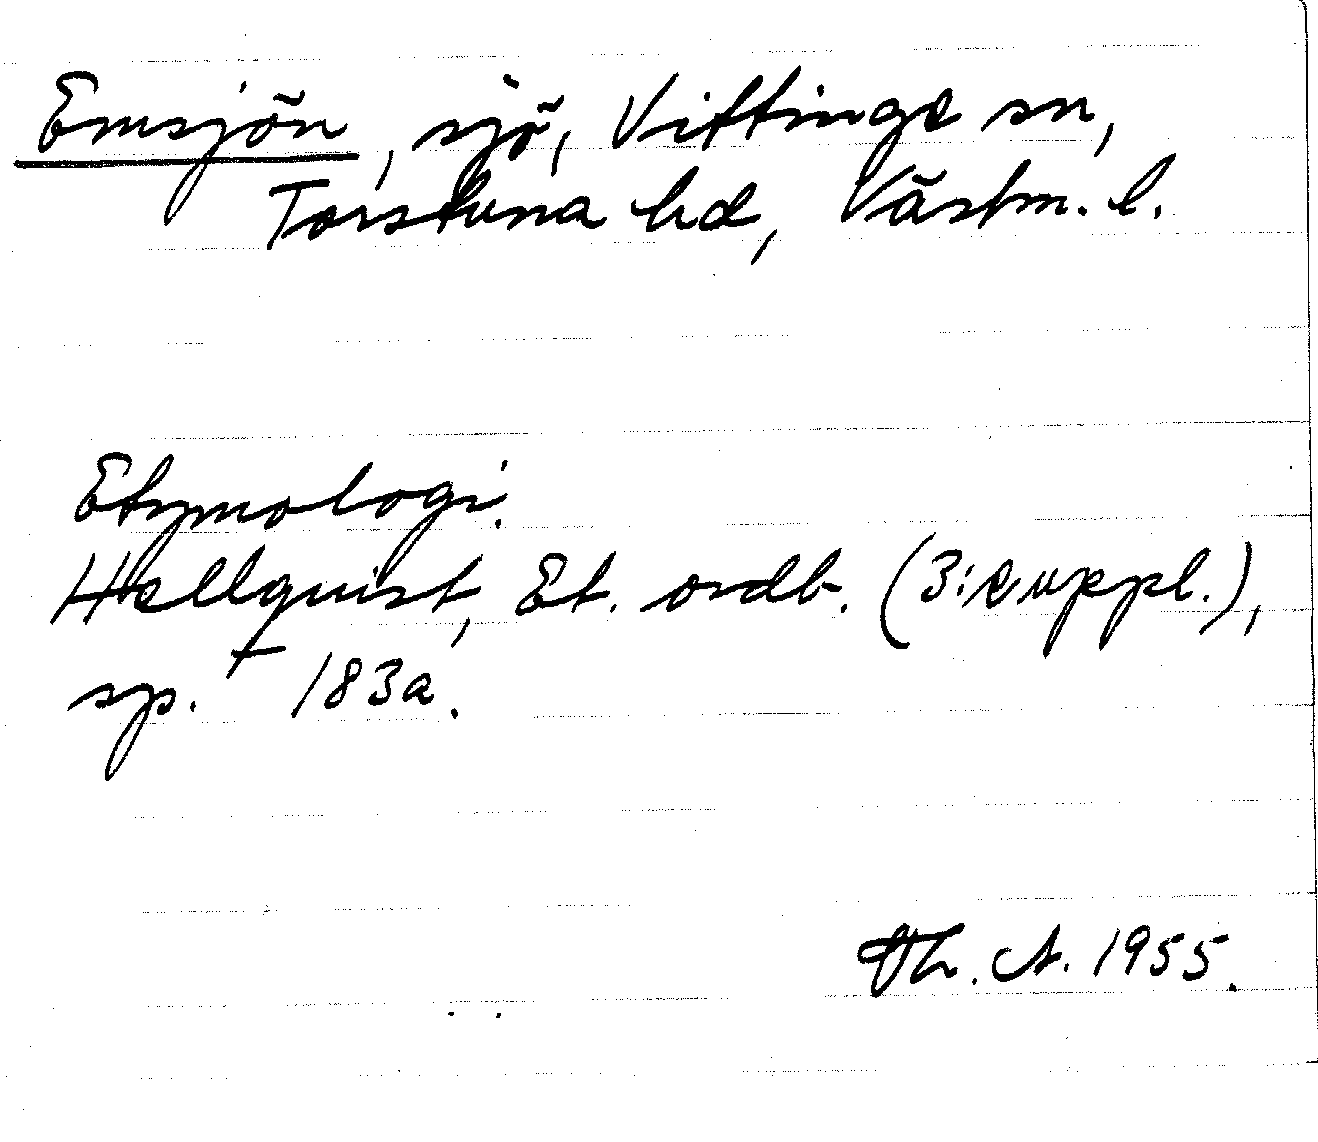 Emsjön, sjö, Vittinge sn,
Torstuna hd, Västm. l.
Etymologi.
Hellquist, Et. ordb. (3:e uppl.),
sp. 183a.
Th. A. 1955.